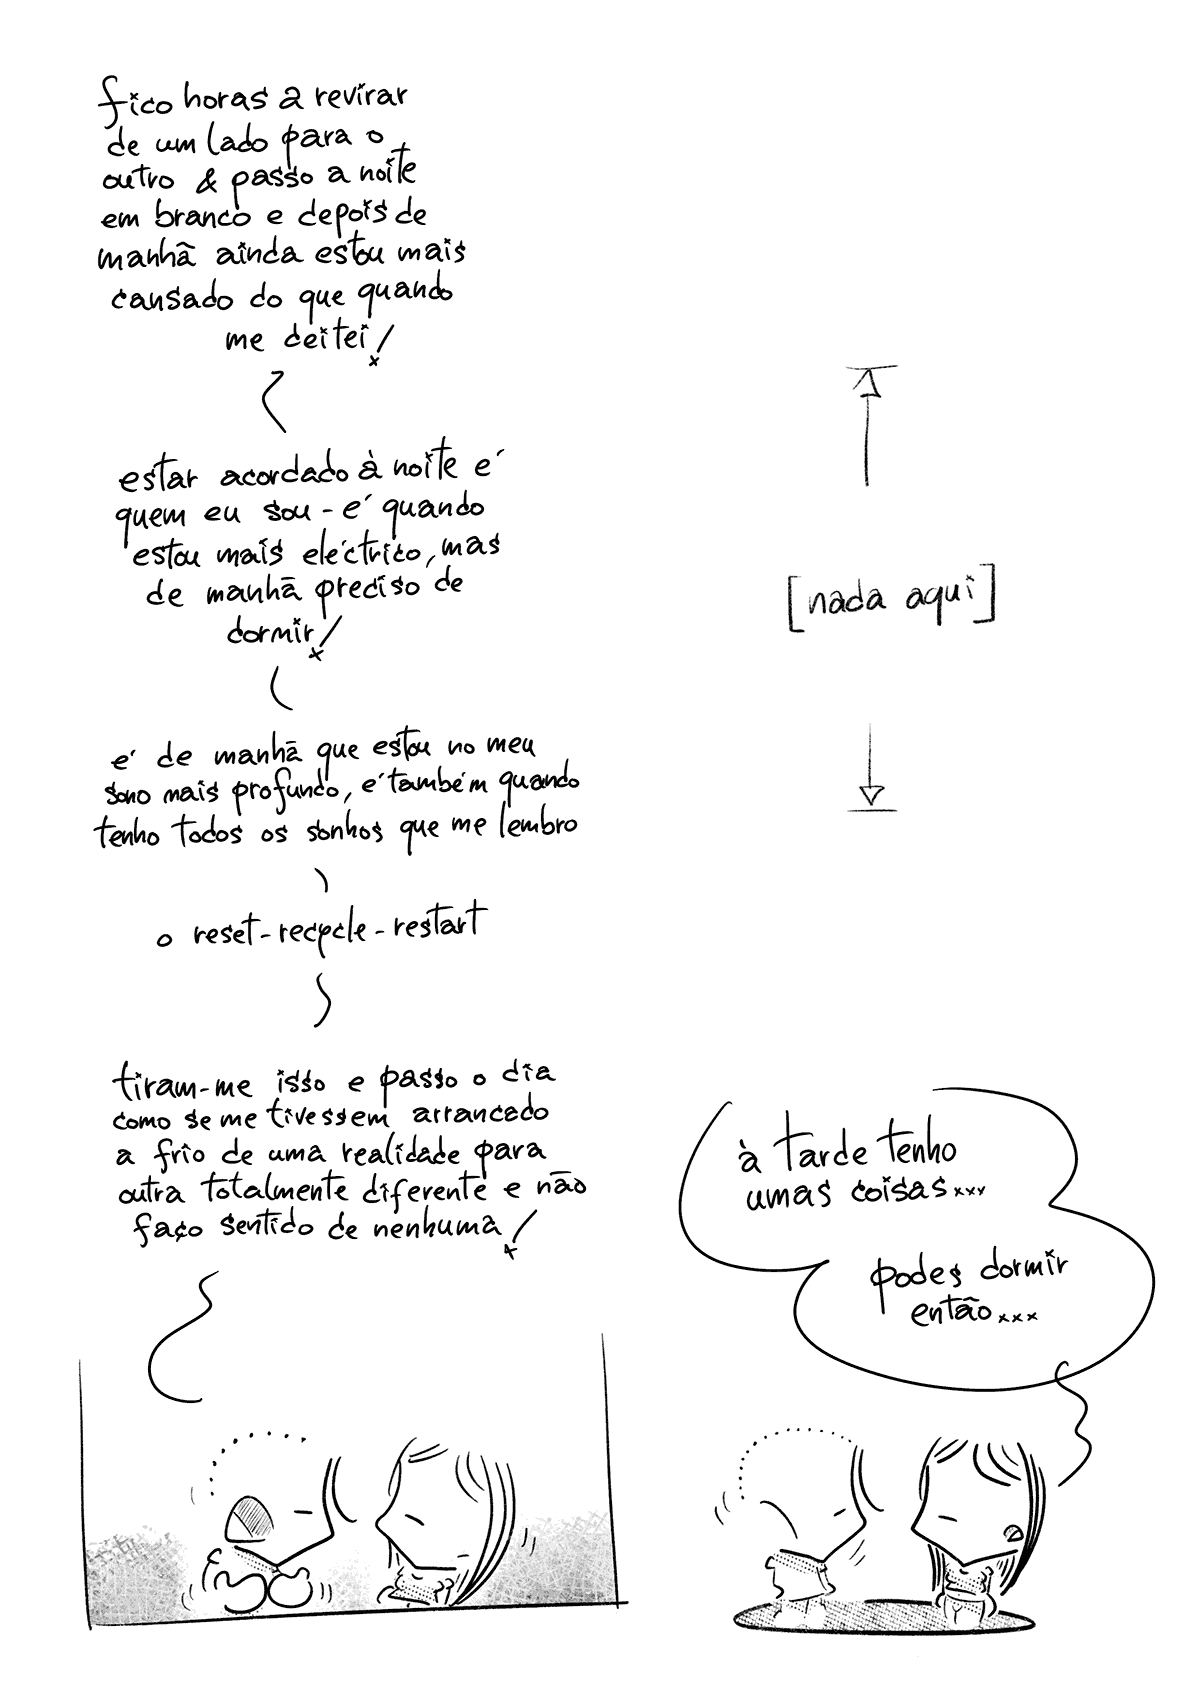 fico horas a revirar
de um lado para o
outro & passo a noite
em branco e depois de
manhã ainda estou mais
cansado do que quando
me deitei!
estar acordado à noite é
quem eu sou - é quando
estou mais eléctrico, mas
de manhã preciso de
dormir!
é de manhã que estou no meu
sono mais profundo, é também quando
tenho todos os sonhos que me lembro
o reset-recycle-restart
tiram-me isso e passo o dia
como se me tivessem arrancado
a frio de uma realidade para
outra totalmente diferente e não
faço sentido de nenhuma!
[nada aqui]
à tarde tenho
umas coisas...
podes dormir
então...